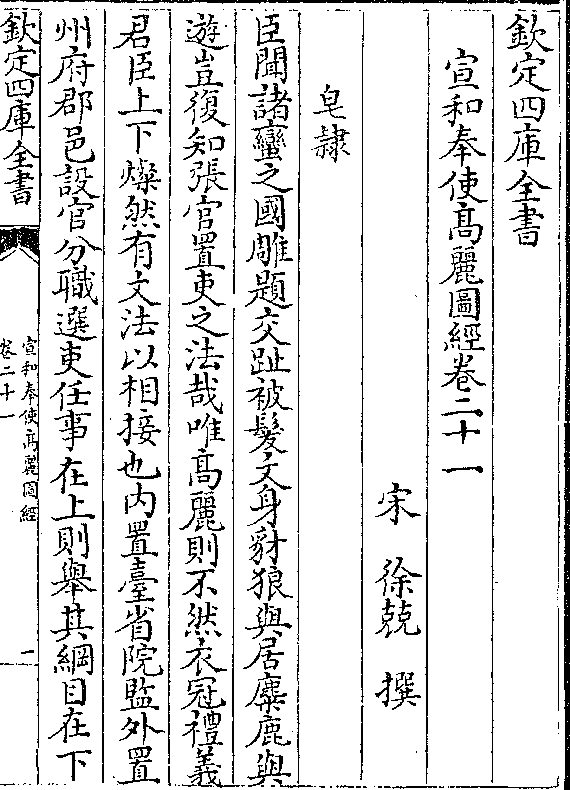 欽定四庫全書
宣和奉使高麗圖經卷二十一
宋 徐兢 撰
皂隸
臣聞諸蠻之國雕題交趾被髮文身豺狼與居麋鹿與
遊豈復知張官置吏之法哉唯高麗則不然衣冠禮義
君臣上下燦然有文法以相接也内置臺省院監外置
州府郡邑設官分職選吏任事在上則舉其綱目在下
欽定四庫全書
宣和奉使高麗圖經
卷二十一
一